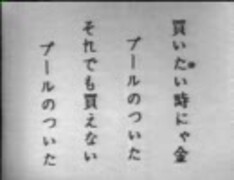 買いたい時にゃ金
プールのついた
それでも買えない
プールのついた